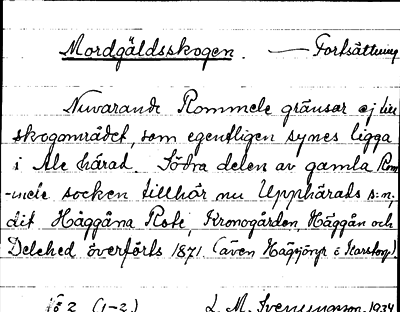 Mordgäldsskogen. — Fortsättning
Nuvarande Rommele gränsar ej till
skogområdet, som egentligen synes ligga
i Ale härad. Södra delen av gamla Rom
-mele socken tillhör nu Upphärads s:n,
dit Häggåna Rote, Kronogården, Häggån och
Delehed överförts 1871 (även
2 (1-2.) L. M. 1934